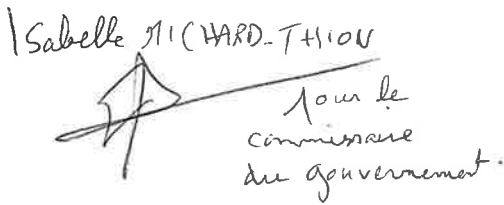 Isabelle MICHARD-THION
Pour le
commissaire
du gouvernement.